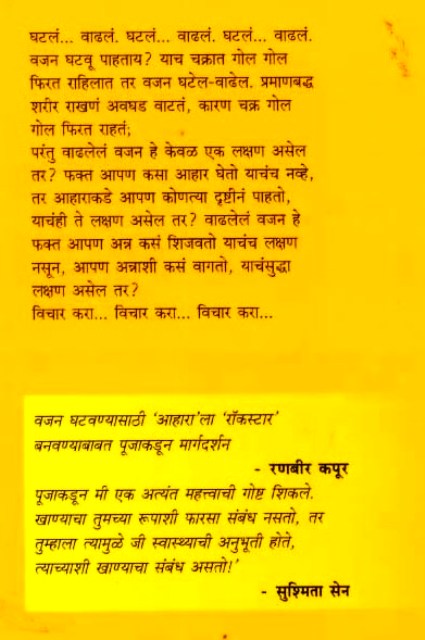 घटलं... वाढलं. घटलं... वाढलं. घटलं... वाढलं.
वजन घटवू पाहताय? याच चक्रात गोल गोल
फिरत राहिलात तर वजन घटेल-वाढेल. प्रमाणबद्ध
शरीर राखणं अवघड वाटतं, कारण चक्र गोल
गोल फिरत राहतं;
परंतु वाढलेलं वजन हे केवळ एक लक्षण असेल
तर? फक्त आपण कसा आहार घेतो याचंच नव्हे,
तर आहाराकडे आपण कोणत्या दृष्टीनं पाहतो,
याचंही ते लक्षण असेल तर? वाढलेलं वजन हे
फक्त आपण अन्न कसं शिजवतो याचंच लक्षण
नसून, आपण अन्नाशी कसं वागतो, याचंसुद्धा
लक्षण असेल तर?
विचार करा... विचार करा... विचार करा...
वजन घटवण्यासाठी ‘आहारा’ला ‘रॉकस्टार’
बनवण्याबाबत पूजाकडून मार्गदर्शन
- रणबीर कपूर
पूजाकडून मी एक अत्यंत महत्त्वाची गोष्ट शिकले.
खाण्याचा तुमच्या रूपाशी फारसा संबंध नसतो, तर
तुम्हाला त्यामुळे जी स्वास्थ्याची अनुभूती होते,
त्याच्याशी खाण्याचा संबंध असतो!’
- सुश्मिता सेन